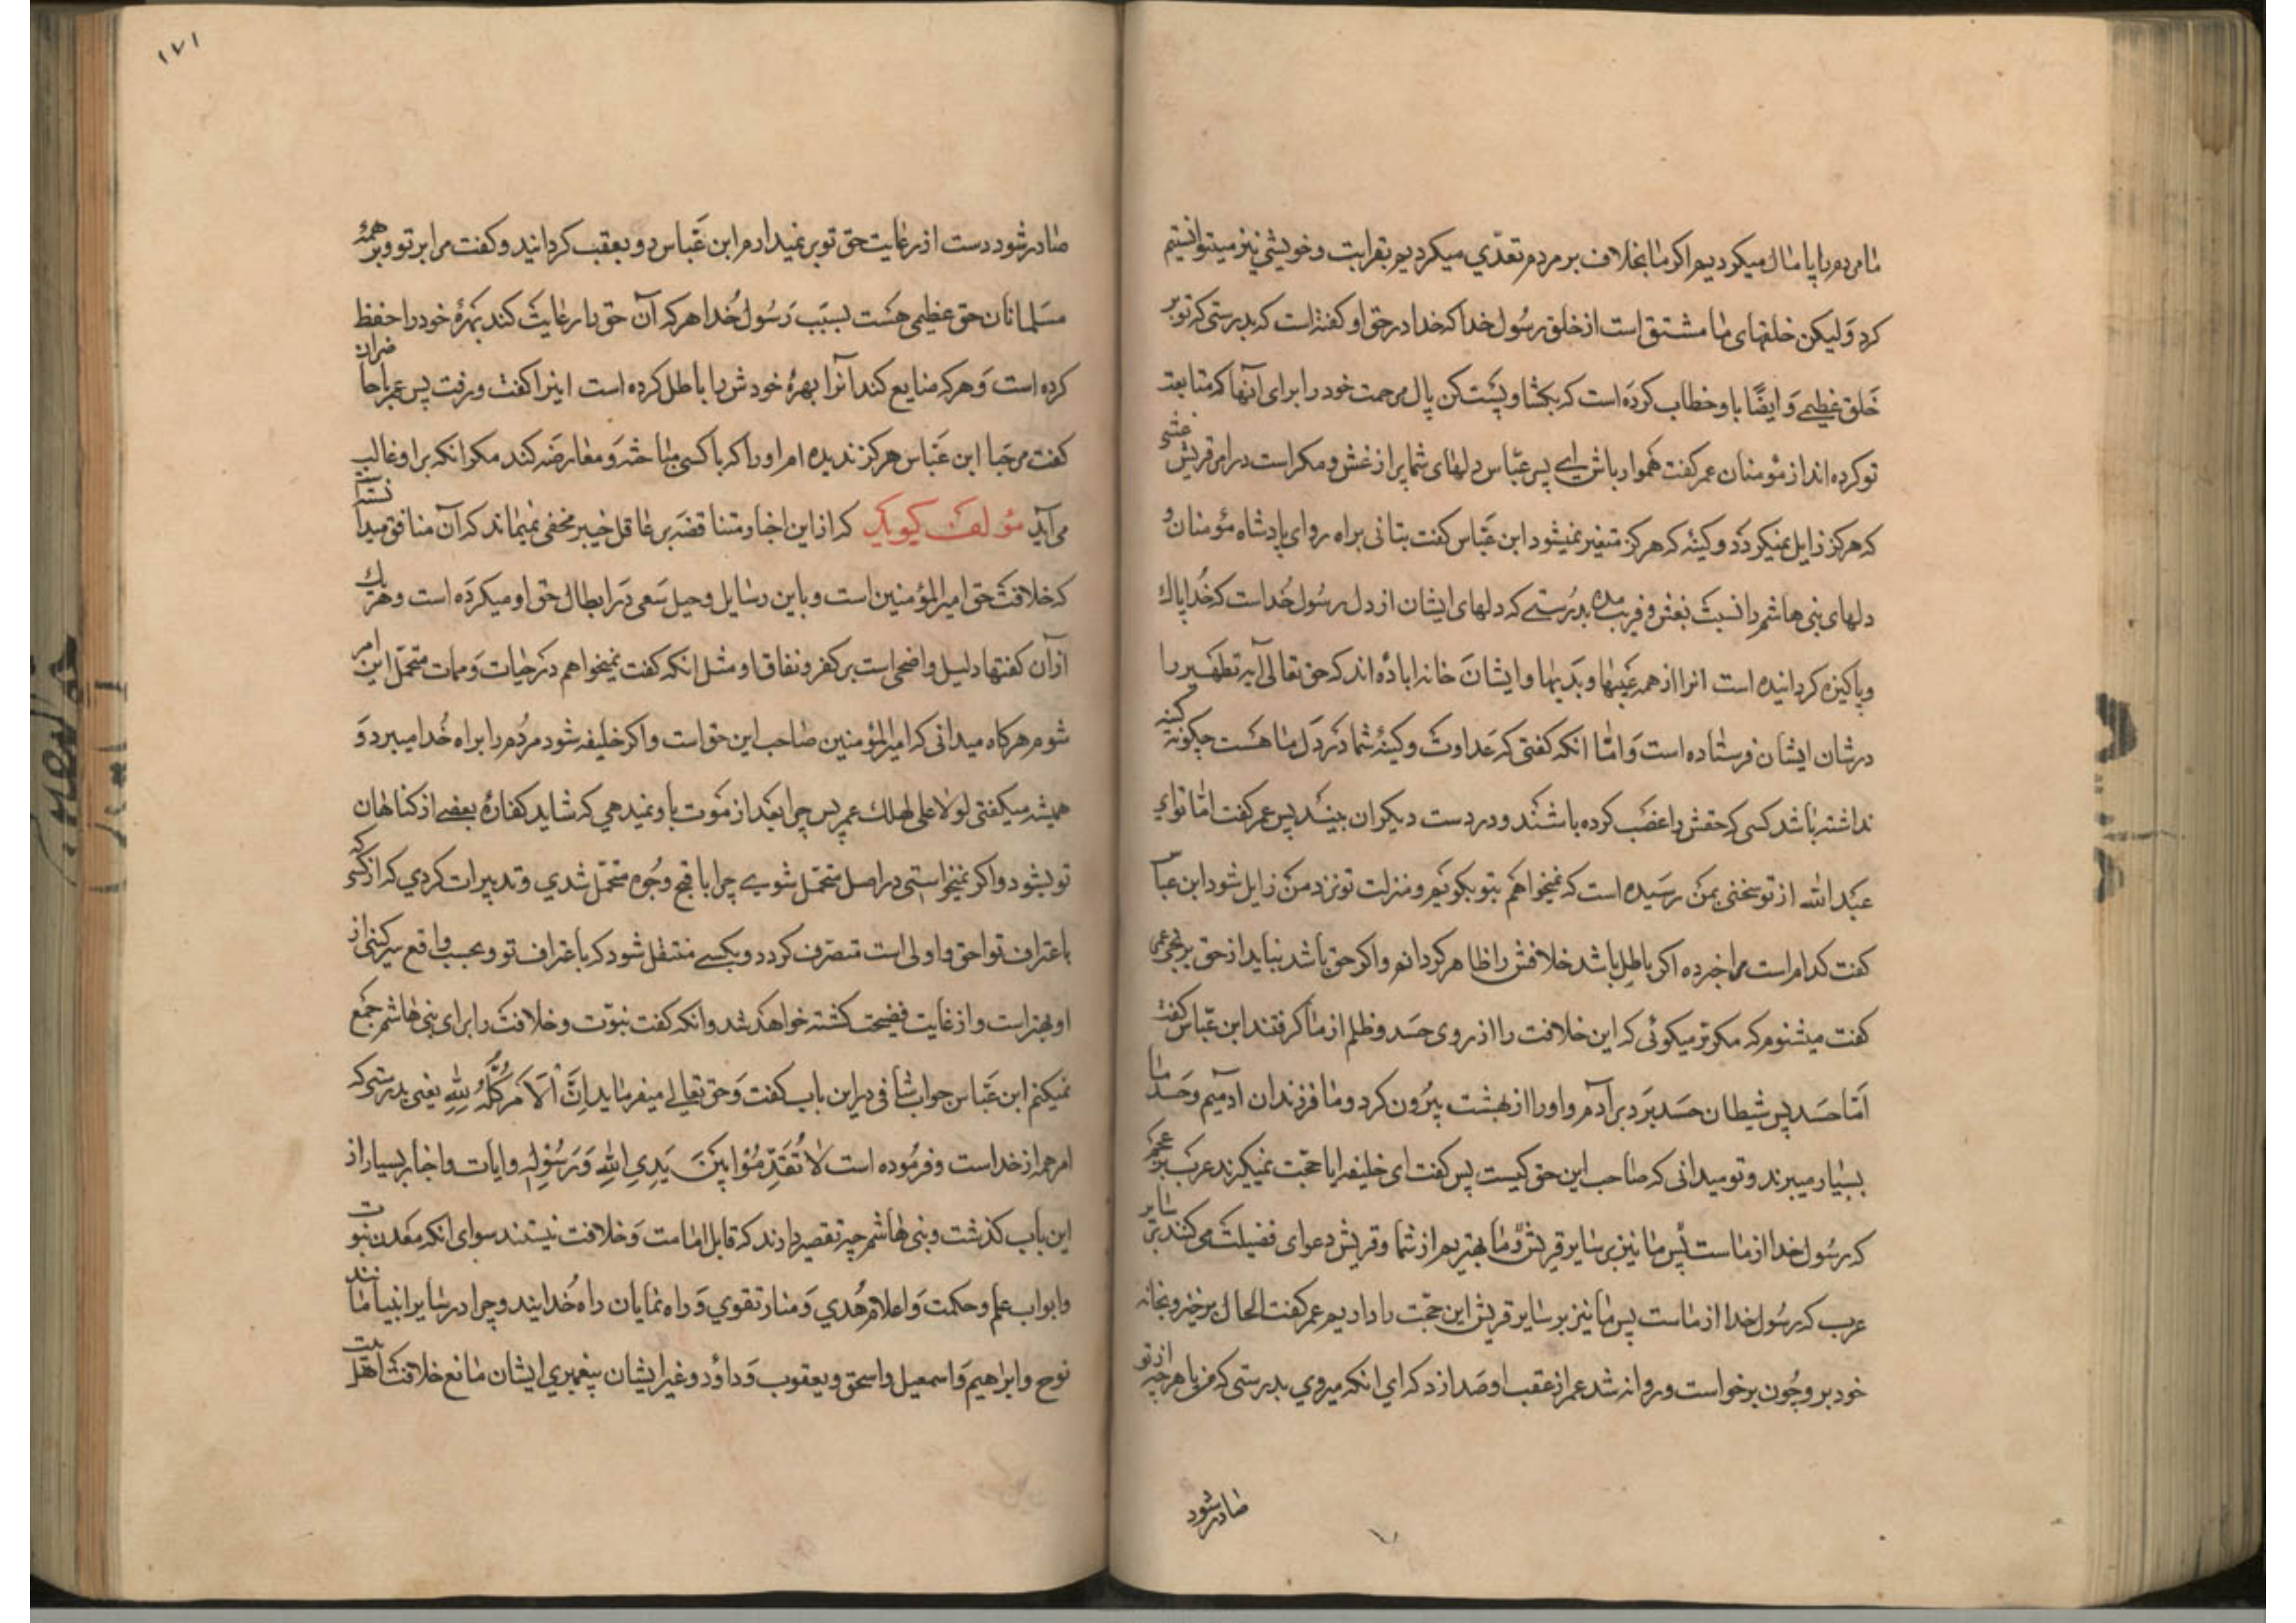 ما مردم را پامال میکردیم اکر ما بخلاف بر مردم تعدّي میکردیم بقرابت و خویشي نیز میتوانستیم
کرد وَلیکن خلقهای ما مشتق است از خلق رسُول خدا که خدا در حق او کفته است که بدرستی که تو بر
خَلق عظیمي وَ ایضًا باو خطاب کردَه است که بکشا و پَست کن بال مرحمت خود را برای آنها که متابعت
تو کرده اند از مؤمنان عمر کفت هموار باش اے پسر عبّاس دلهای شما پر از غش و مکر است در امر قریش غشي
که هرکز زایل نمیکردَد و کینه که هرکز متغیر نمیشود ابن عَبّاس کفت بتانی براه رو ای پادشاه مؤمنان و
دلهای بنی هاشم را نسبَت بغش و فریب مده بدرُستے که دلهای ایشان از دل رسُول خُداست که خُدا پاك
و پاکیزه کردانیده است انرا از همه عَیبها و بَدیها و ایشانَ خانه اباده اند که حق تعالی آیه تطهیر را
در شان ایشان فرستاده است وَ امّا انکه کفتی که عَداوت و کینۀ شما دَر دَل ما هَست چکونه کینه
نداشته باشد کسی که حقش را غضَب کرده باشَند و در دست دیکران بینَد پس عمر کفت امّا تو اے
عَبد الله از تو سخنی بمَن رسَیده است که نمیخواهَم بتو بکویَم و منزلت تو نزد مَن زایل شود ابن عباس
کفت کدام است مرا خبر ده اکر باطِل باشد خلافش را ظاهر کردانم و اکر حق باشد نباید از حق برنجی عمر
کفت میشنوم که مکرّر میکوئی که این خلافت را از روی حسَد و ظلم از ما کرفتند ابن عبّاس کفت
اَمّا حسَد پس شیطان حسَد بَرَد بر آدَم و او را از بهشت بیرُون کرد و ما فرزندان آدمیم و حَسَد ما
بسیار میبرند و تو میدانی که صاحب این حق کیست پس کفت ای خلیفه ایا حجّت نمیکیرند عرَب بر عجَم
که رسُول خدا از ماست پَس ما نیز بر سایر قریش و ما بهتریم از شما و قریش دعوای فضیلت می کنند بر سایر
عرب که رسُول خدا از ماست پس ما نیز بر سایر قریش این حجّت را داریم عمر کفت الحال برخیز و بخانه
خود برو چُون برخواست و روانه شد عمر از عقب او صَدا زد که اي انکه میروي بدرستی که من با هرچه از تو
صادر شود
۱۷۱
صادر شود دست از رعایت حق تو بر نمیدارم ابن عَبّاس رو بعقب کردانید و کفت مرا بر تو و بر همۀ
مسَلمانان حق عظیمی هسَت بسبَب رَسُول خُدا هر که آن حق را رعایَت کند بَهرۀ خود را حفظ
کرده است وَ هر که ضایع کند آنرا بهرۀ خودش را باطل کرده است اینرا کفت و رفت پس عمر با حاضران
کفت مرحَبا ابن عَبّاس هرکز ندیده ام او را که با کسی مباحثه وَ معارضَه کند مکر انکه بر او غالب
می آید مؤلف کوید که از این اخبار متناقضَه بر عاقل خبیر مخفی نمیماند که آن منافق میدانسته
که خلافت حق امیر المؤمنین است و باین رسایل و حیل سَعی دَر ابطال حق او میکردَه است و هر یك
از آن کفتها دلیل واضحی است بر کفر و نفاق او مثل انکه کفت نمیخواهم دَر حیات وَ ممات متحمّل این امر
شوم هرکاه میدانی که امیر المؤمنین صاحب این حق است و اکر خلیفه شود مردُم را براه خُدا میبرد وَ
همیشه میکفتی لولا علی لهلك عمر پس چرا بعَد از مَوت باو نمیدهي که شاید کفارۀ بعضے از کناهان
تو بشود و اکر نمیخواستی در اصل متحمّل شوے چرا باقبح وجُوه متحمّل شدي و تدبیرات کردي که از کسی که
باعتراف تو احق و اولی است متصرّف کردد و بکسے منتقل شود که باعتراف تو و بحسب واقع سرکین از
او بهتر است و از غایت فضیحت کشته خواهَد شد و انکه کفت نبوّت و خلافت را برای بنی هاشم جَمع
نمیکنم ابن عَبّاس جواب شافی در این باب کفت وَ حق تعالے میفرماید اِنَّ اْلاَمْرَ کُلَّهُ لِلّٰهِ یعنی بدرستی که
امر همه از خداست و فرمُوده است لاٰ تُقَدِّمُوا بَیْنَ یَدِی اللهِ وَ رَسُوْلِهِ و ایات و اخبار بسیار از
این باب کذشت و بنی هاشم چه تقصیر دارند که قابل امامت وَ خلافت نیستند سوای انکه معَدن نبوّت
و ابواب علم و حکمت وَ اعلام هُدي وَ منار تقوي وَ راه نمایان راه خُدایند و چرا در سایر انبیا مانند
نوح و ابراهیم وَ اسمعیل و اسحق و یعقوب وَ داوُد و غیر ایشان پیغمبري ایشان مانع خلافت اهل بیت